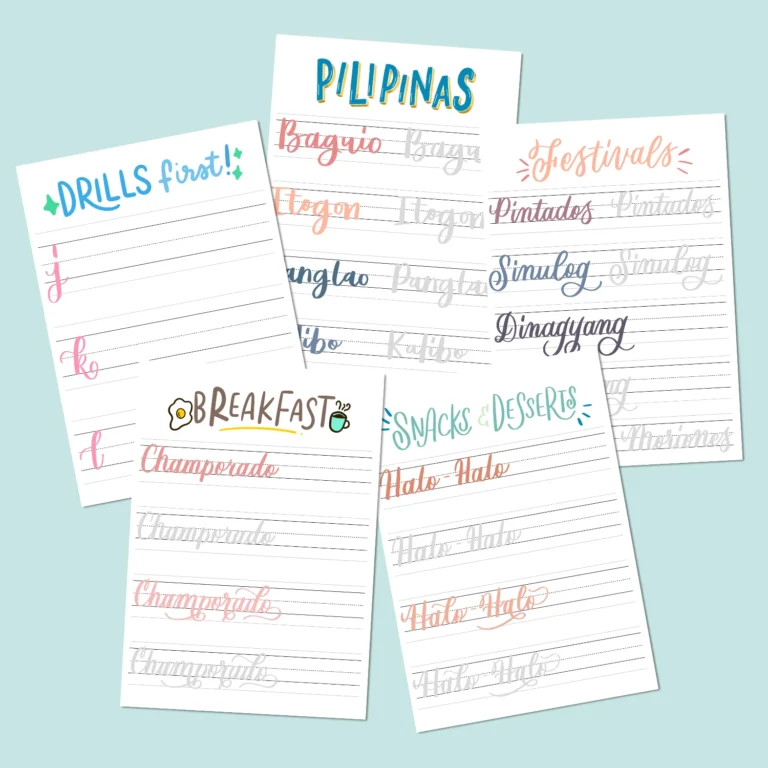 DRILLS first!
j
k
l
PILIPINAS
Baguio Bagu
Itogon Itogon
anglao Panglao
libo Kalibo
Festivals
Pintados Pintados
Sinulog Sinulog
Dinagyang
ng
Moriones
BREAKFAST
Champorado
Champorado
Champorado
Champorado
SNACKS & DESSERTS
Halo-Halo
Halo-Halo
Halo-Halo
Halo-Halo